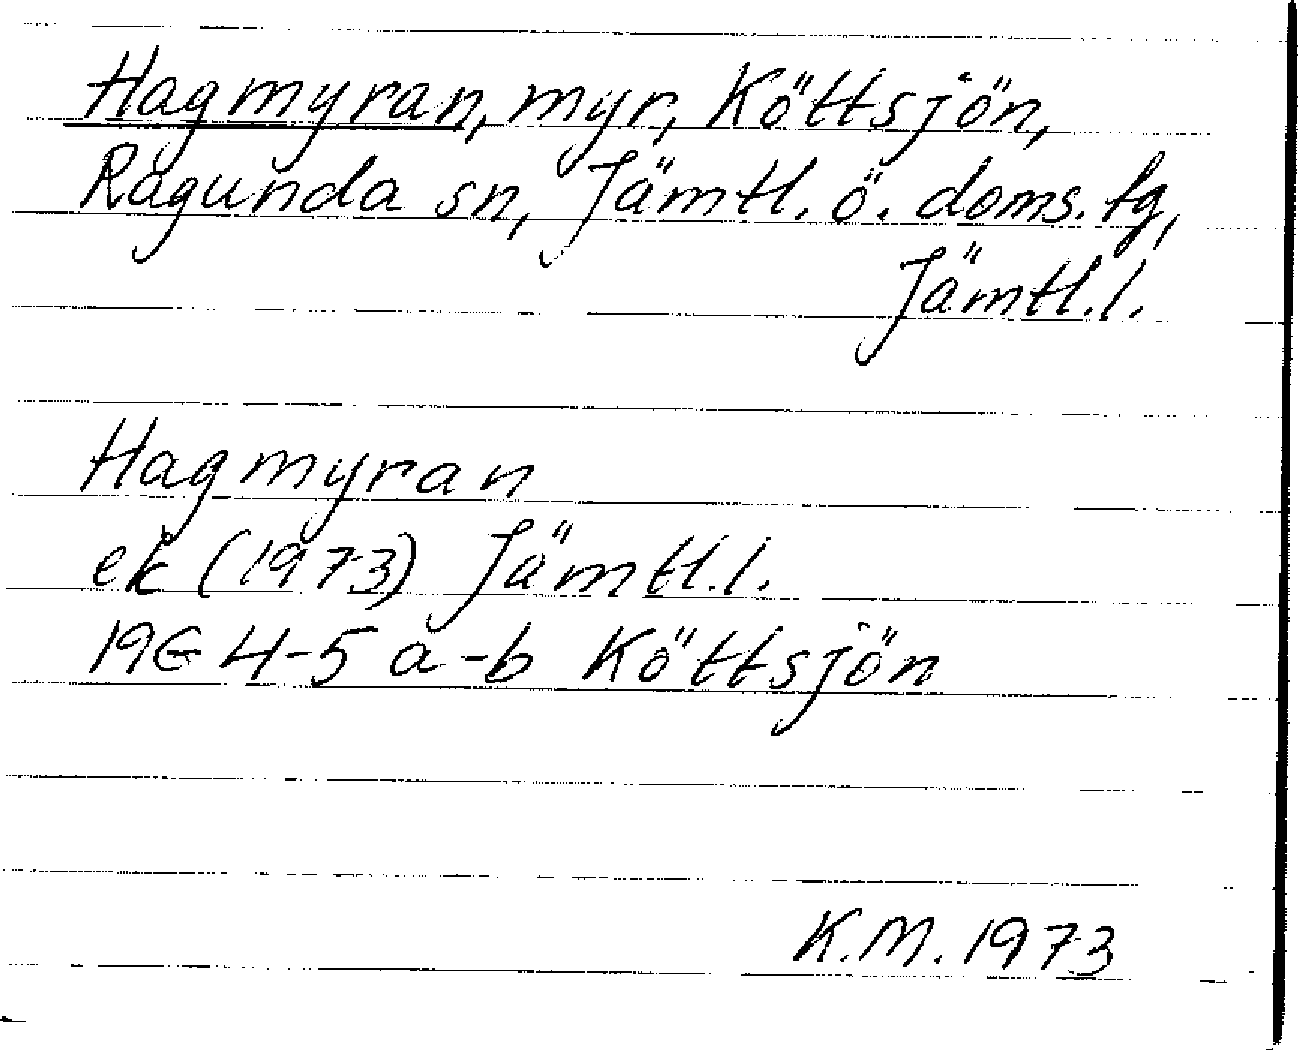 Hagmyran, myr, Köttsjön,
Ragunda sn, Jämtl. ö. doms. fg,
Jämtl. l.
Hagmyran
ek (1973) Jämtl. l.
19E 4-5 a-b Köttsjön
K.M. 1973